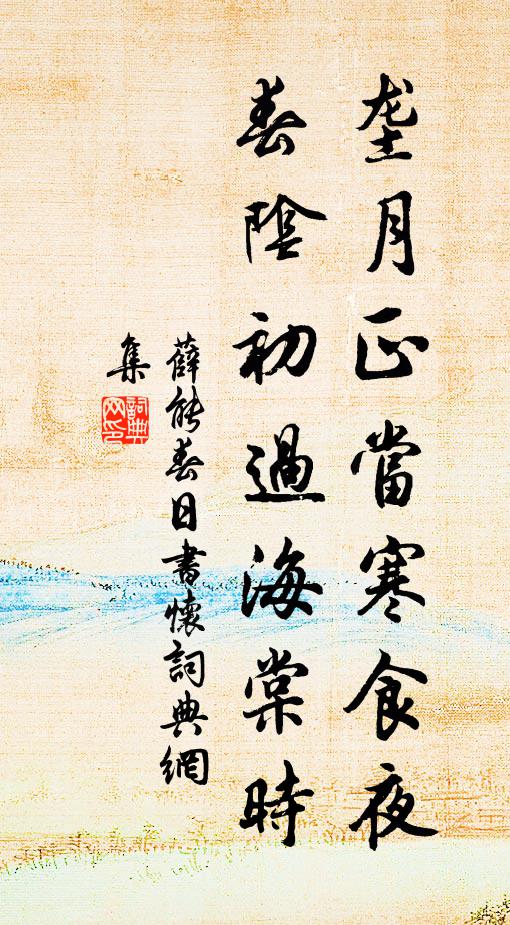 垄月正當寒食夜
春陰初過海棠時
薛能春日書懷詞典網
集
詞典网印